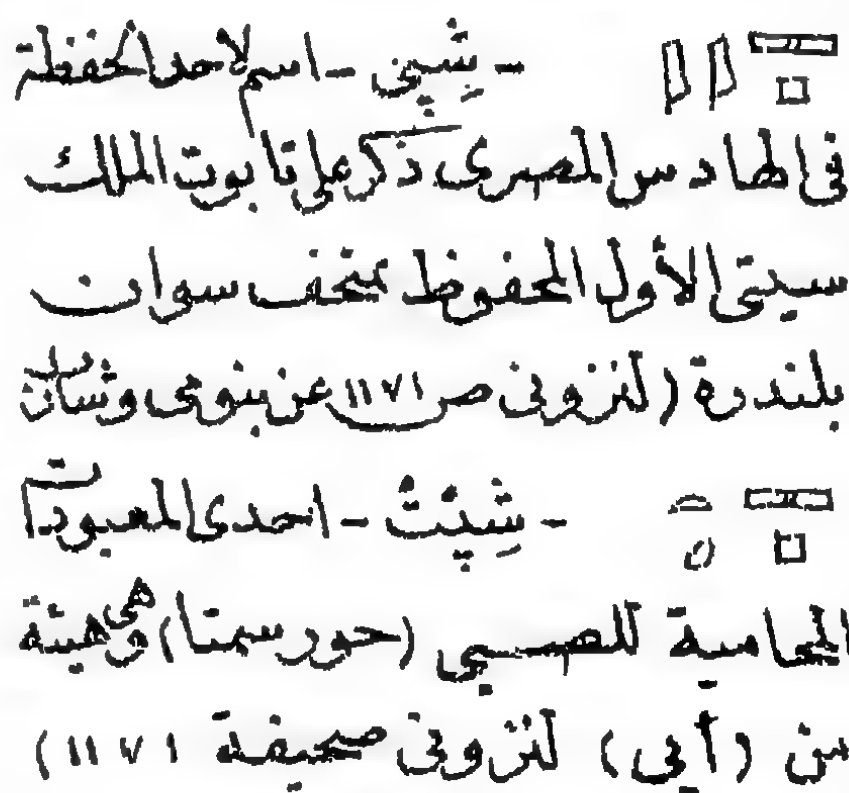 - شِپِى - اسم لاحد الحفظة
فى الهادس المصرى ذكر على تابوت الملك
سيتى الأول المحفوظ بمتحف سوان
بلندرة (لنزونى ص ١١٧١ عن بنومى وشارن
- شِپِتْ - احدى المعبودات
المحامية للصبى (حورسمتا) وهى هيئة
من (أپى) لنزونى صحيفة ١١٧١)